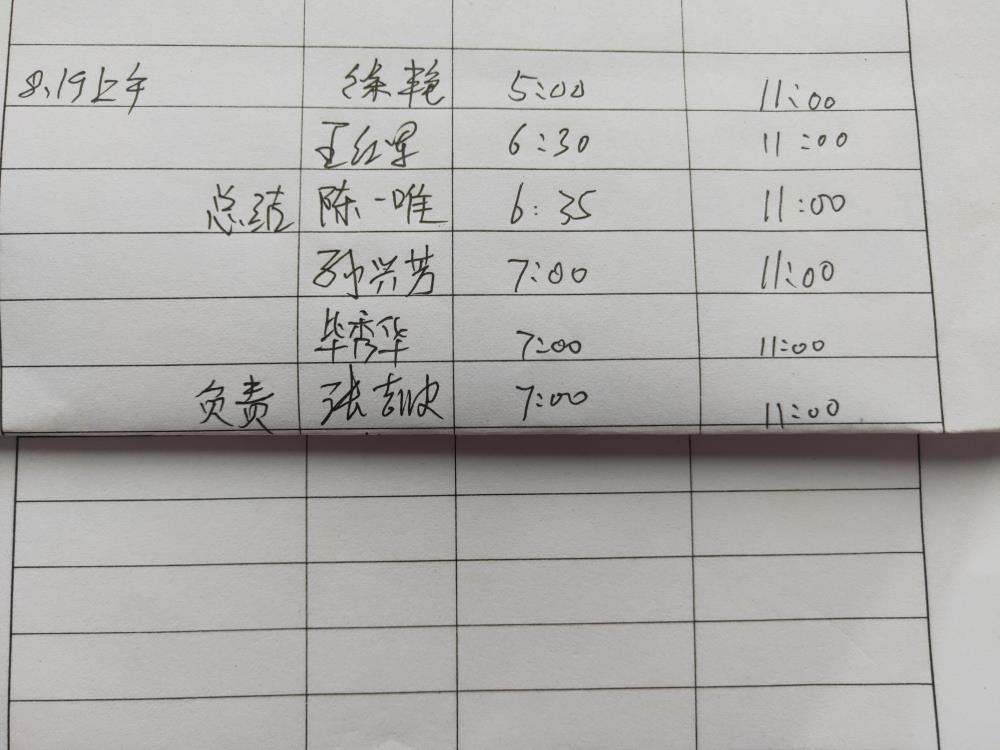 8.19上午 徐艳 5:00 11:00
王红军 6:30 11:00
总结 陈一唯 6:35 11:00
孙兴芳 7:00 11:00
毕秀华 7:00 11:00
负责 张 7:00 11:00